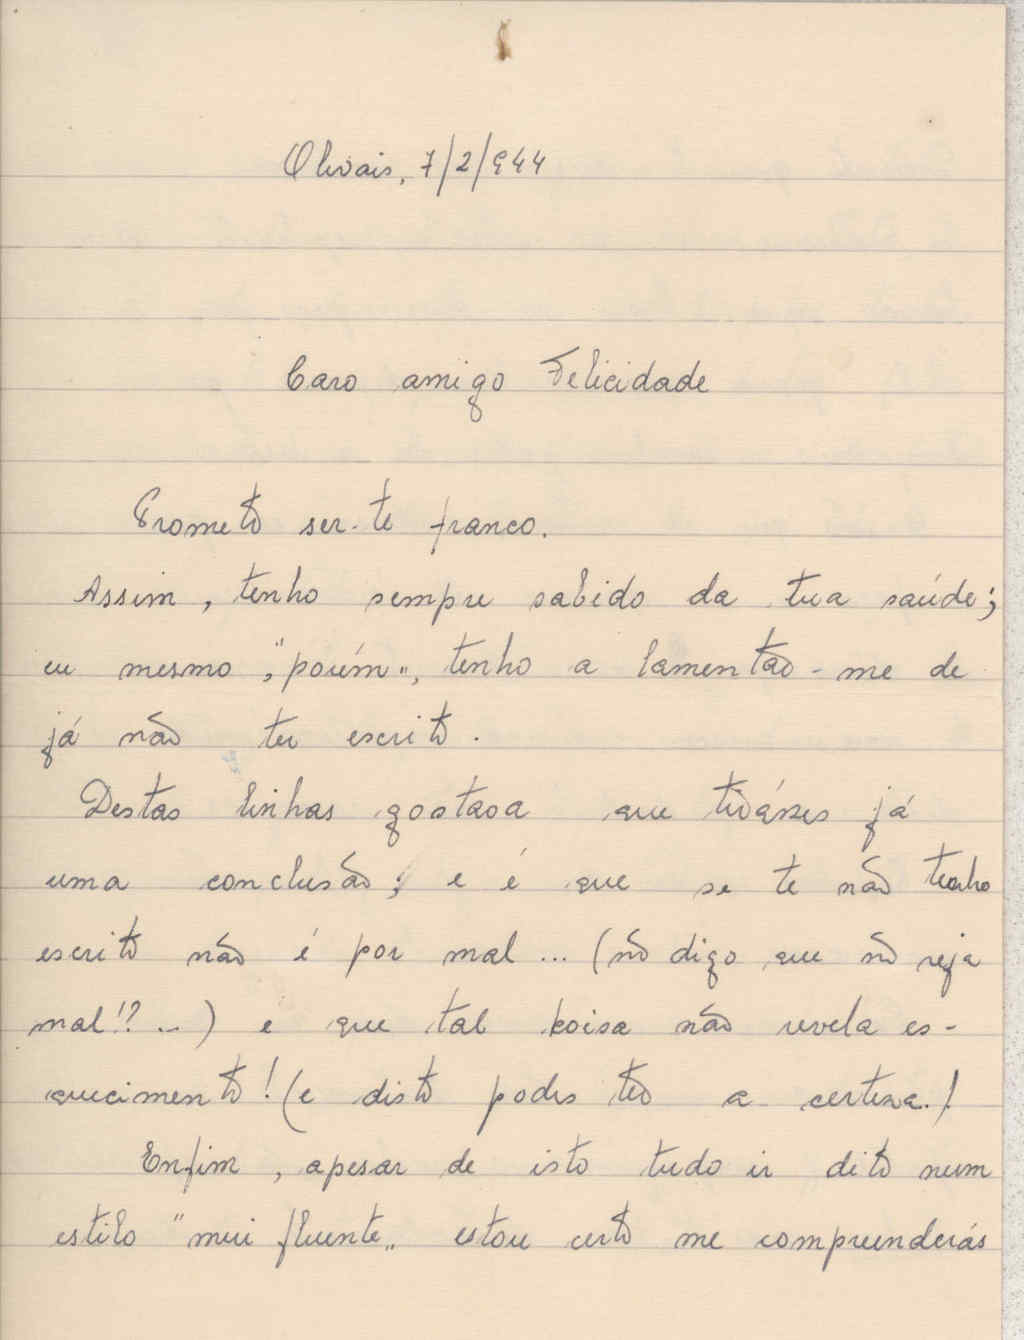 Olivais, 7/2/944
Caro amigo Felicidade
Prometo ser-te franco.
Assim, tenho sempre sabido da tua saúde;
eu mesmo, "porém", tenho a lamentar-me de
já não ter escrito.
Destas linhas gostava que tirásses já
uma conclusão; e é que se te não tenho
escrito não é por mal... (nõ digo que nõ seja
mal!?...) e que tal coisa não revela es-
quecimento! (e disto podes ter a certeza!
Enfim, apesar de isto tudo ir dito num
estilo "mui fluente" estou certo me compreenderás